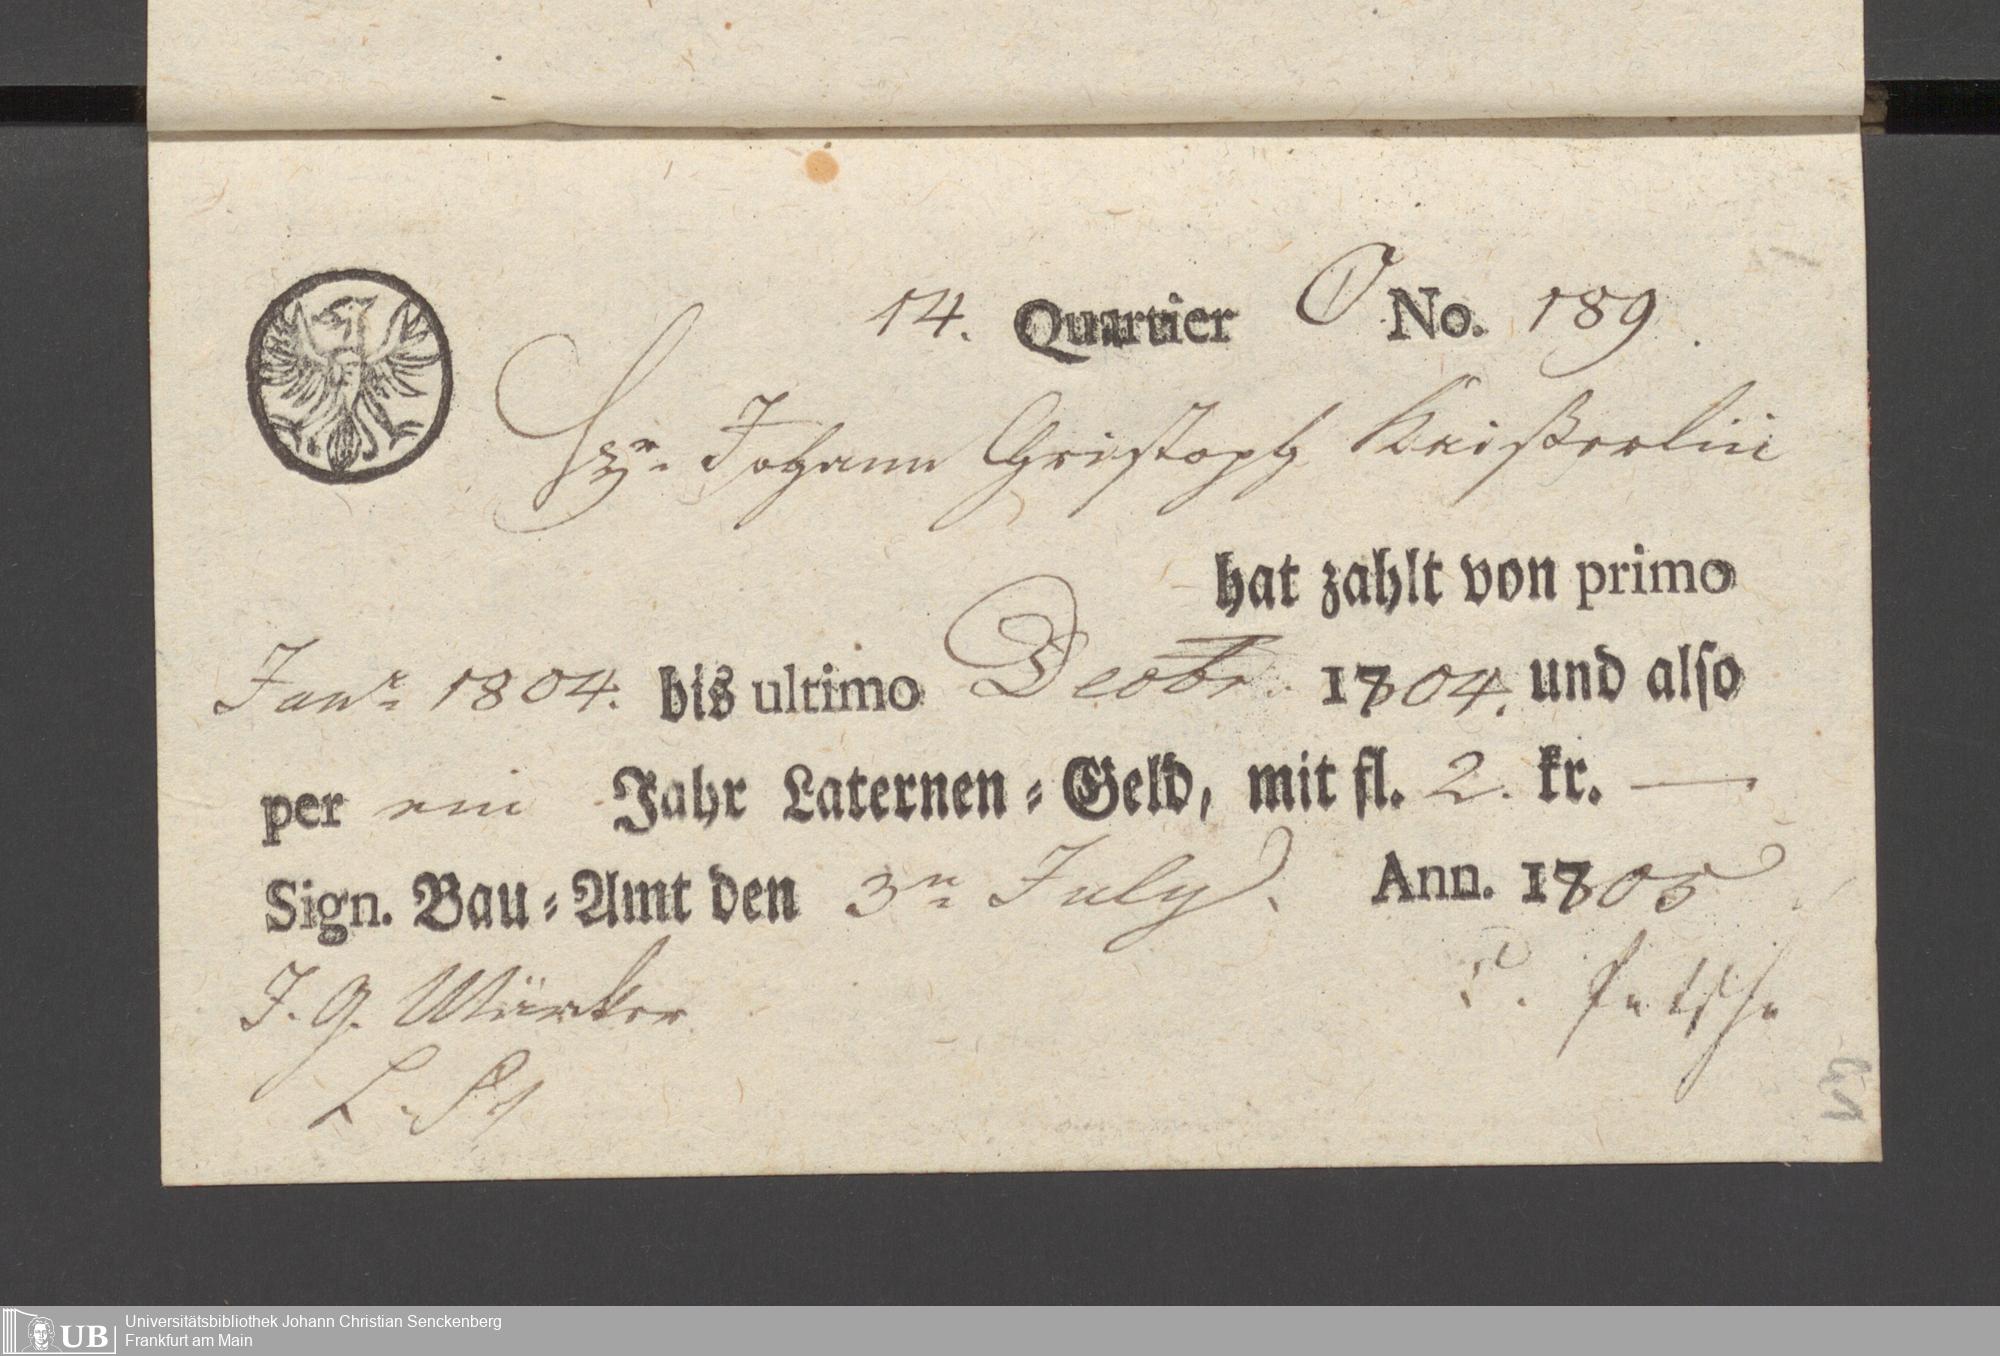 14. Quartier O No. 189.
Hr. Johann Christoph
hat zahlt von primo
Janr 1804. bis ultimo Decbr. 1804. und also
per ein Jahr Laternen-Geld, mit fl. 2. kr. —
Sign. Bau-Amt den 3n July. Ann. 1805
J. G.
Universitätsbibliothek Johann Christian Senckenberg
UB
Frankfurt am Main